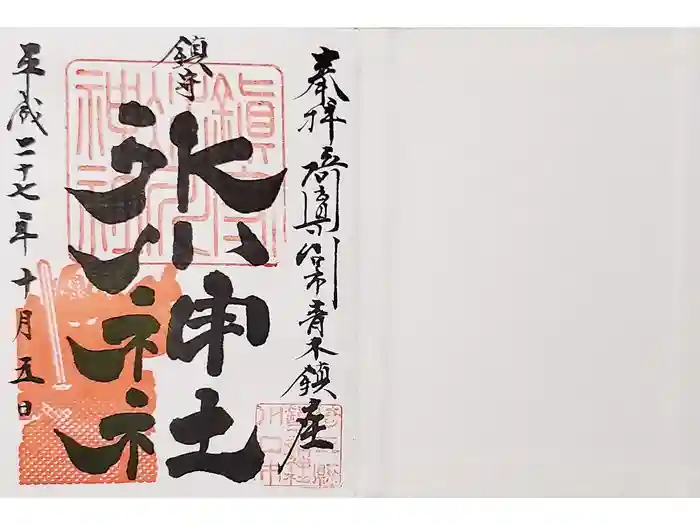 奉拝 武蔵国川口市青木鎮座
鎮守
氷川神社
平成二十七年十月五日
鎮守氷川神社